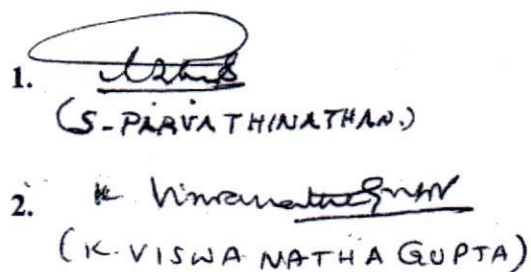 1.
(S-PARVATHINATHAN.)
2. K Viswanatha Gupta
(K. VISWANATHA GUPTA)